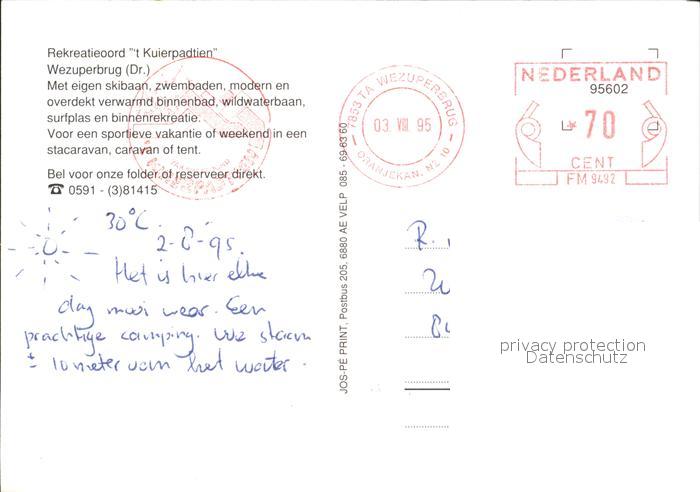 Rekreatieoord "'t Kuierpadtien"
Wezuperbrug (Dr.)
Met eigen skibaan, zwembaden, modern en
overdekt verwarmd binnenbad, wildwaterbaan,
surfplas en binnenrekreatie.
Voor een sportieve vakantie of weekend in een
stacaravan, caravan of tent.
Bel voor onze folder of reserveer direkt.
☎ 0591 - (3)81415
30°C.
2-8-95.
Het is hier elke
dag mooi weer. Een
prachtige camping. We staan
± 10 meter van het water.
JOS-PÉ PRINT, Postbus 205, 6880 AE VELP 085 - 69 83 60
7853 TA WEZUPERBRUG
03 VIII 95
ORANJEKAN. NZ 10
NEDERLAND
95602
70
CENT
FM 9492
R.
privacy protection
Datenschutz